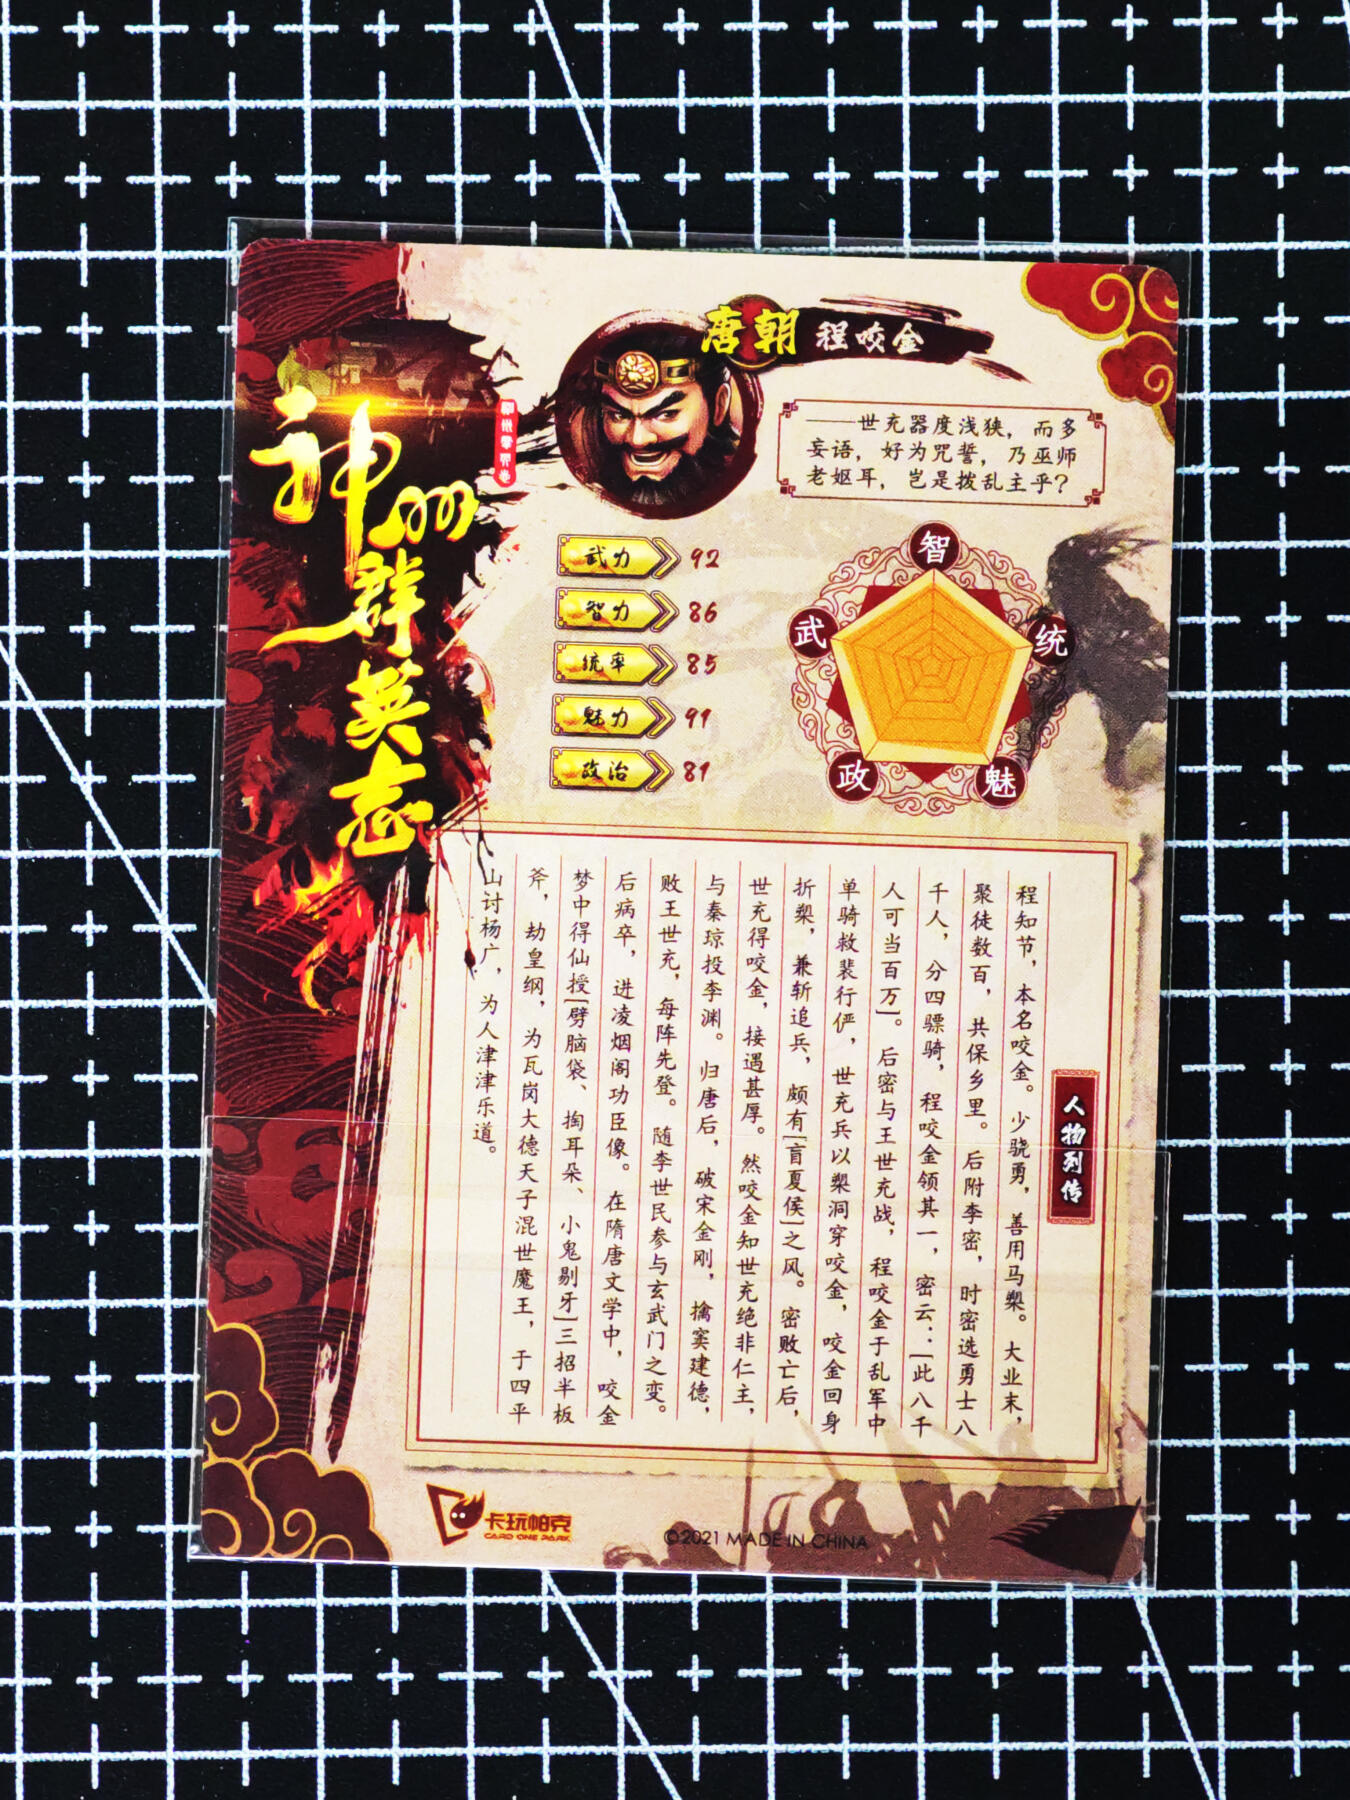 神州
群英志
唐朝 程咬金
——世充器度浅狭，而多
妄语，好为咒誓，乃巫师
老妪耳，岂是拨乱主乎？
武力 92
智力 86
统率 85
魅力 91
政治 81
智
武
统
政
魅
人物列传
程知节，本名咬金。少骁勇，善用马槊。大业末，
聚徒数百，共保乡里。后附李密，时密选勇士八
千人，分四骠骑，程咬金领其一，密云：[此八千
人可当百万]。后密与王世充战，程咬金于乱军中
单骑救裴行俨，世充兵以槊洞穿咬金，咬金回身
折槊，兼斩追兵，颇有[盲夏侯]之风。密败亡后，
世充得咬金，接遇甚厚。然咬金知世充绝非仁主，
与秦琼投李渊。归唐后，破宋金刚，擒窦建德，
败王世充，每阵先登。随李世民参与玄武门之变。
后病卒，进凌烟阁功臣像。在隋唐文学中，咬金
梦中得仙授[劈脑袋、掏耳朵、小鬼剔牙]三招半板
斧，劫皇纲，为瓦岗大德天子混世魔王，于四平
山讨杨广，为人津津乐道。
卡玩帕克
CARD ONE PARK
©2021 MADE IN CHINA